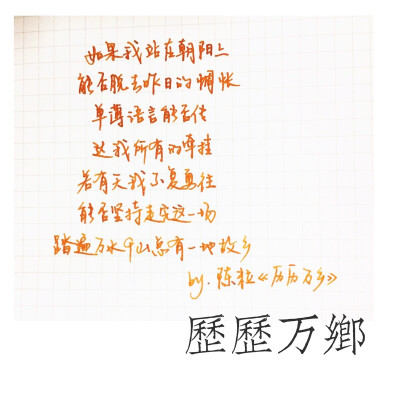 如果我站在朝阳上
能否脱去昨日的惆怅
单薄语言能否传
达我所有的牵挂
若有天我不复勇往
能否坚持走完这一场
踏遍万水千山总有一地故乡
by. 陈粒《历历万乡》
歷歷万鄉